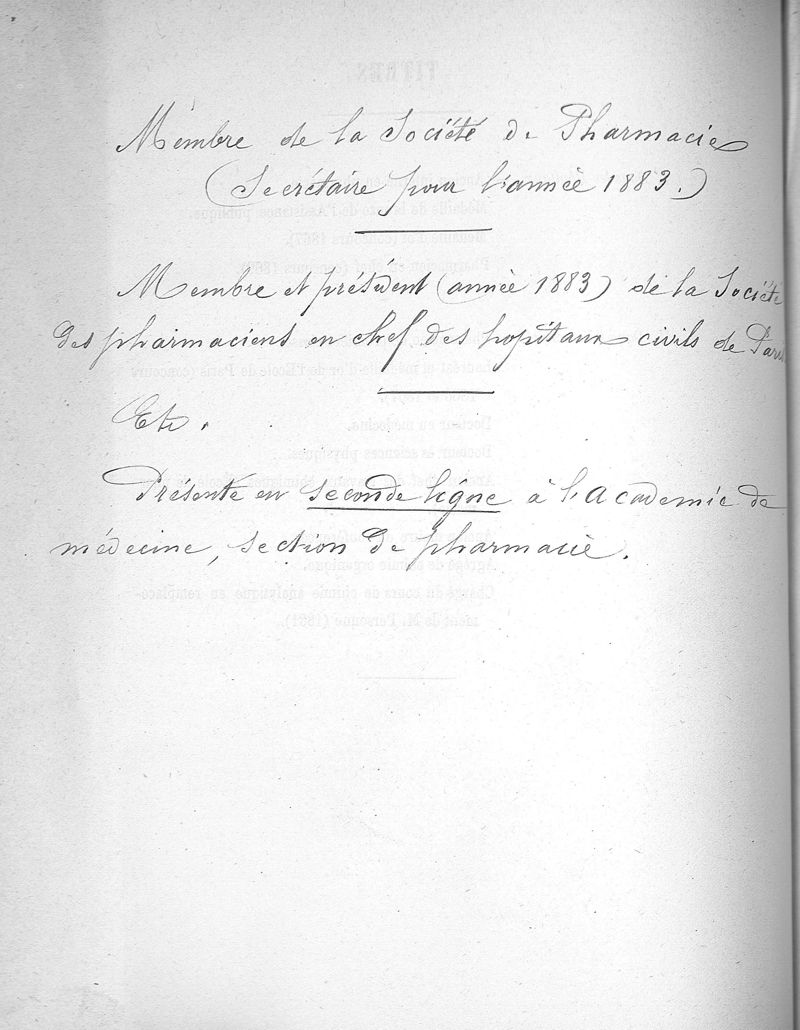 Membre de la Société de Pharmacie
(Secrétaire pour l'année 1883.)
Membre et président (année 1883) de la Société
des pharmaciens en chef des hopitaux civils de Paris
Etc.
Présenté en seconde ligne à l'Academie de
médecine, section de pharmacie.